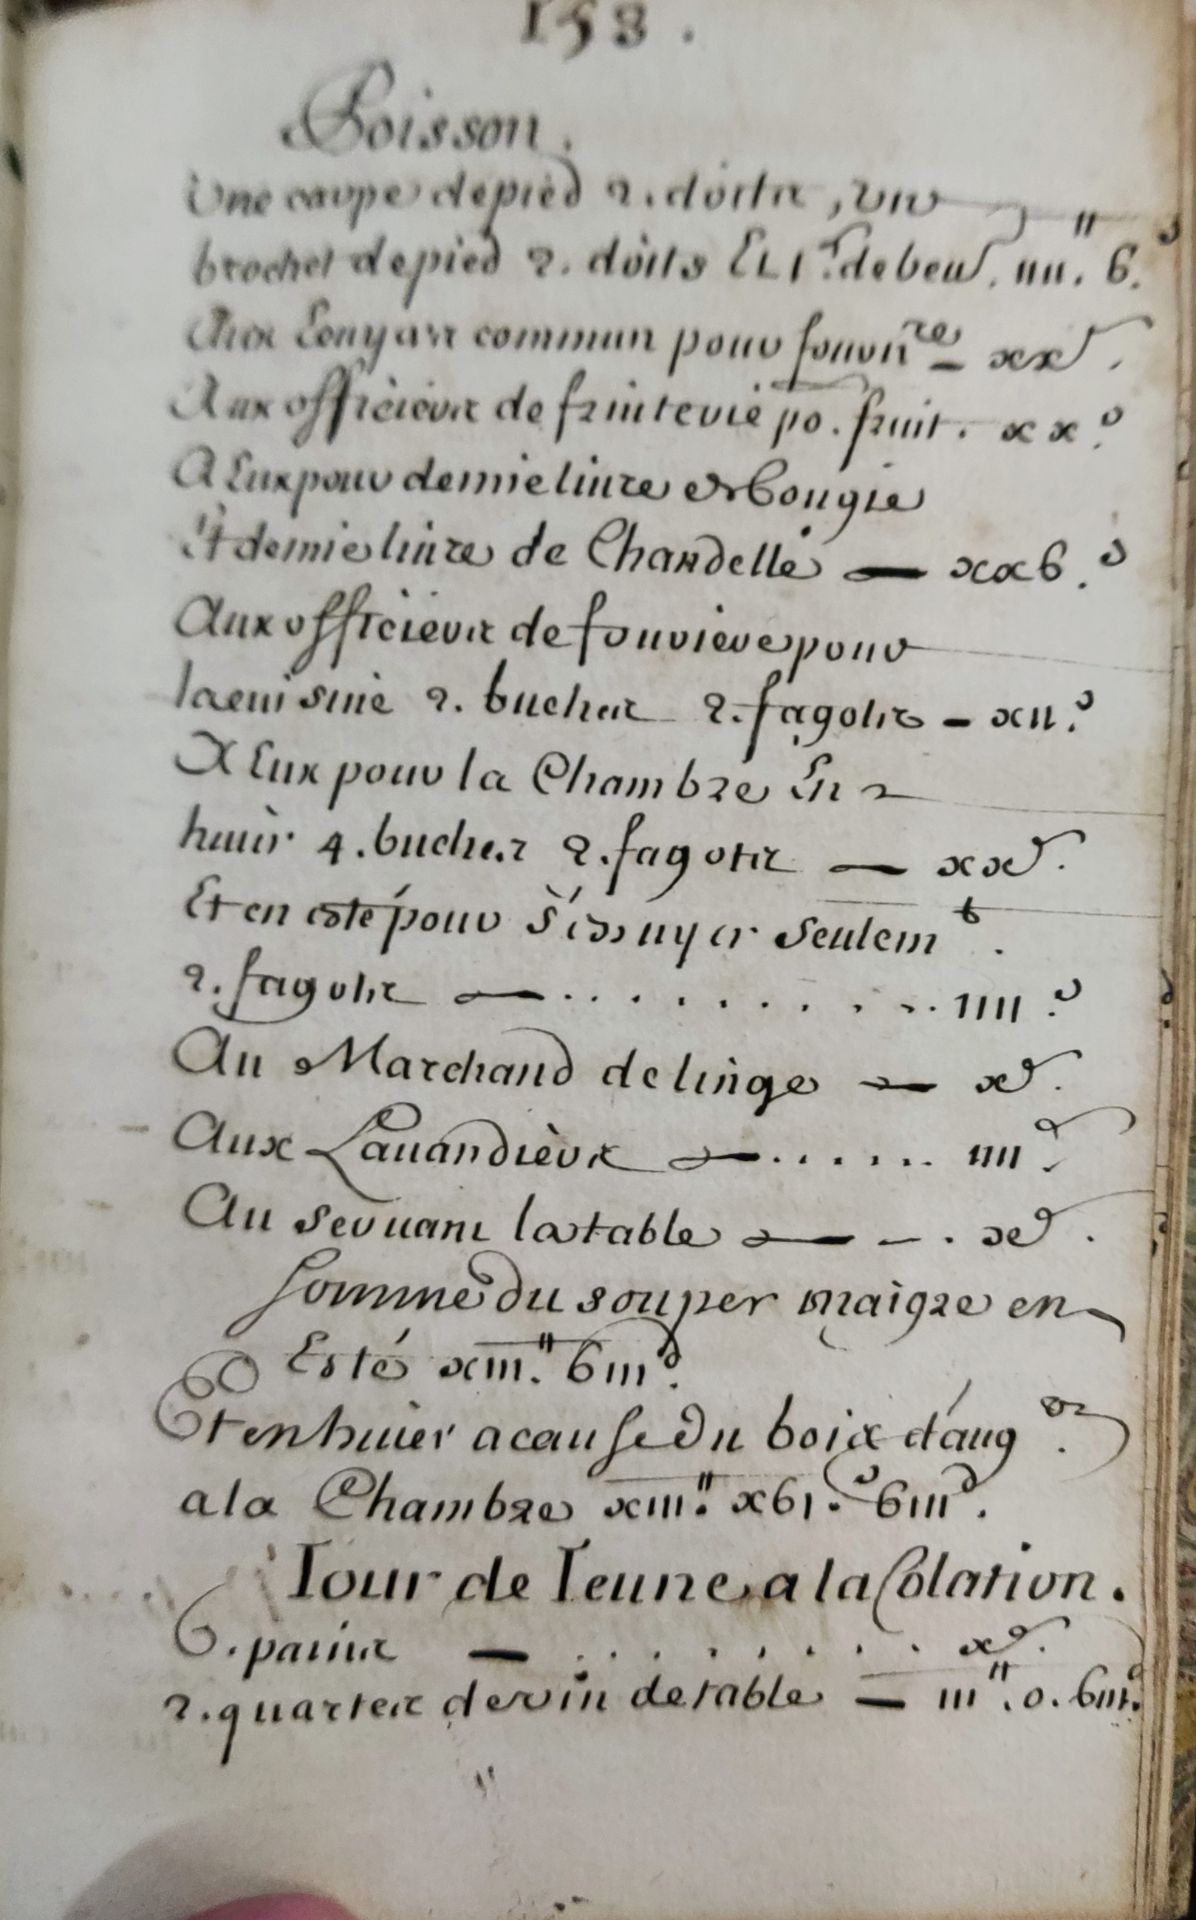 158.
Poisson.
Une carpe de pied 2. doits, un
brochet de pied 2. doits Et 1 l. de beur. IIII. 6. s
Aux Econyers commun pour fourn re - xx s.
Aux officiers de fruiterie po. fruit. xx. s
A Eux pour demie liure de Bougie
Et demie liure de Chandelle — xx6. s
Aux officiers de fouriere pour
la cuisine 2. buches 2. fagots - xII. s
A Eux pour la Chambre En
hiuer 4. buches 2. fagots — xx s.
Et en esté pour s'essuyer seulem t.
2. fagots — . . . . . . . . . . IIII. s
Au Marchand de linge — x s.
Aux Lauandiers — . . . . . . IIII d.
Au seruant la table — - . x s.
Somme du souper maigre en
Esté xIII. " 6III d.
Et en hiuer a cause du boix d'aug. on
a la Chambre xIII. " x6I. s 6III d.
Iour de Ieune a la Colation.
6. pains — . . . . . . . x s.
2. quartes de vin de table — III ". 0. 6III. d